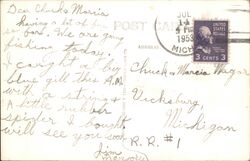 Dear Chuck & Marcia
having a lot of fun
so far. We are going
fishing today.
I caught a big
blue gill this A.M.
with a string &
A little rubber
spider I bought.
Will see you soon
Jim
POST CARD
ADDRESS
JUL
14
PM
1955
MICH
3 CENTS 3
Chuck & Marcia
Vicksburg
Michigan
R.R. #1